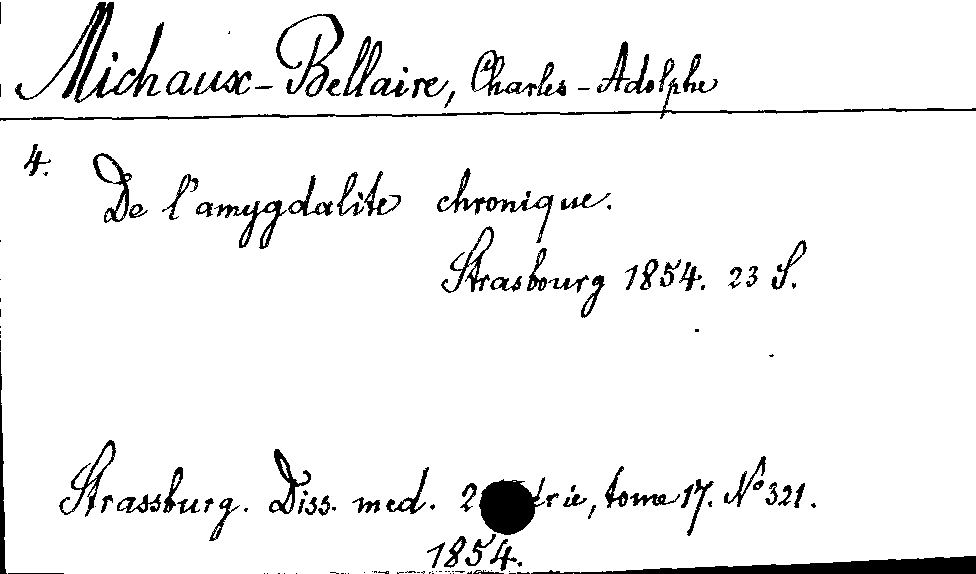 Michaux-Bellaire, Charles-Adolphe
4.
De l'amygdalite chronique.
Strasbourg 1854. 23 S.
Strassburg. Diss. med. 2 érie, tome 17. No 321.
1854.